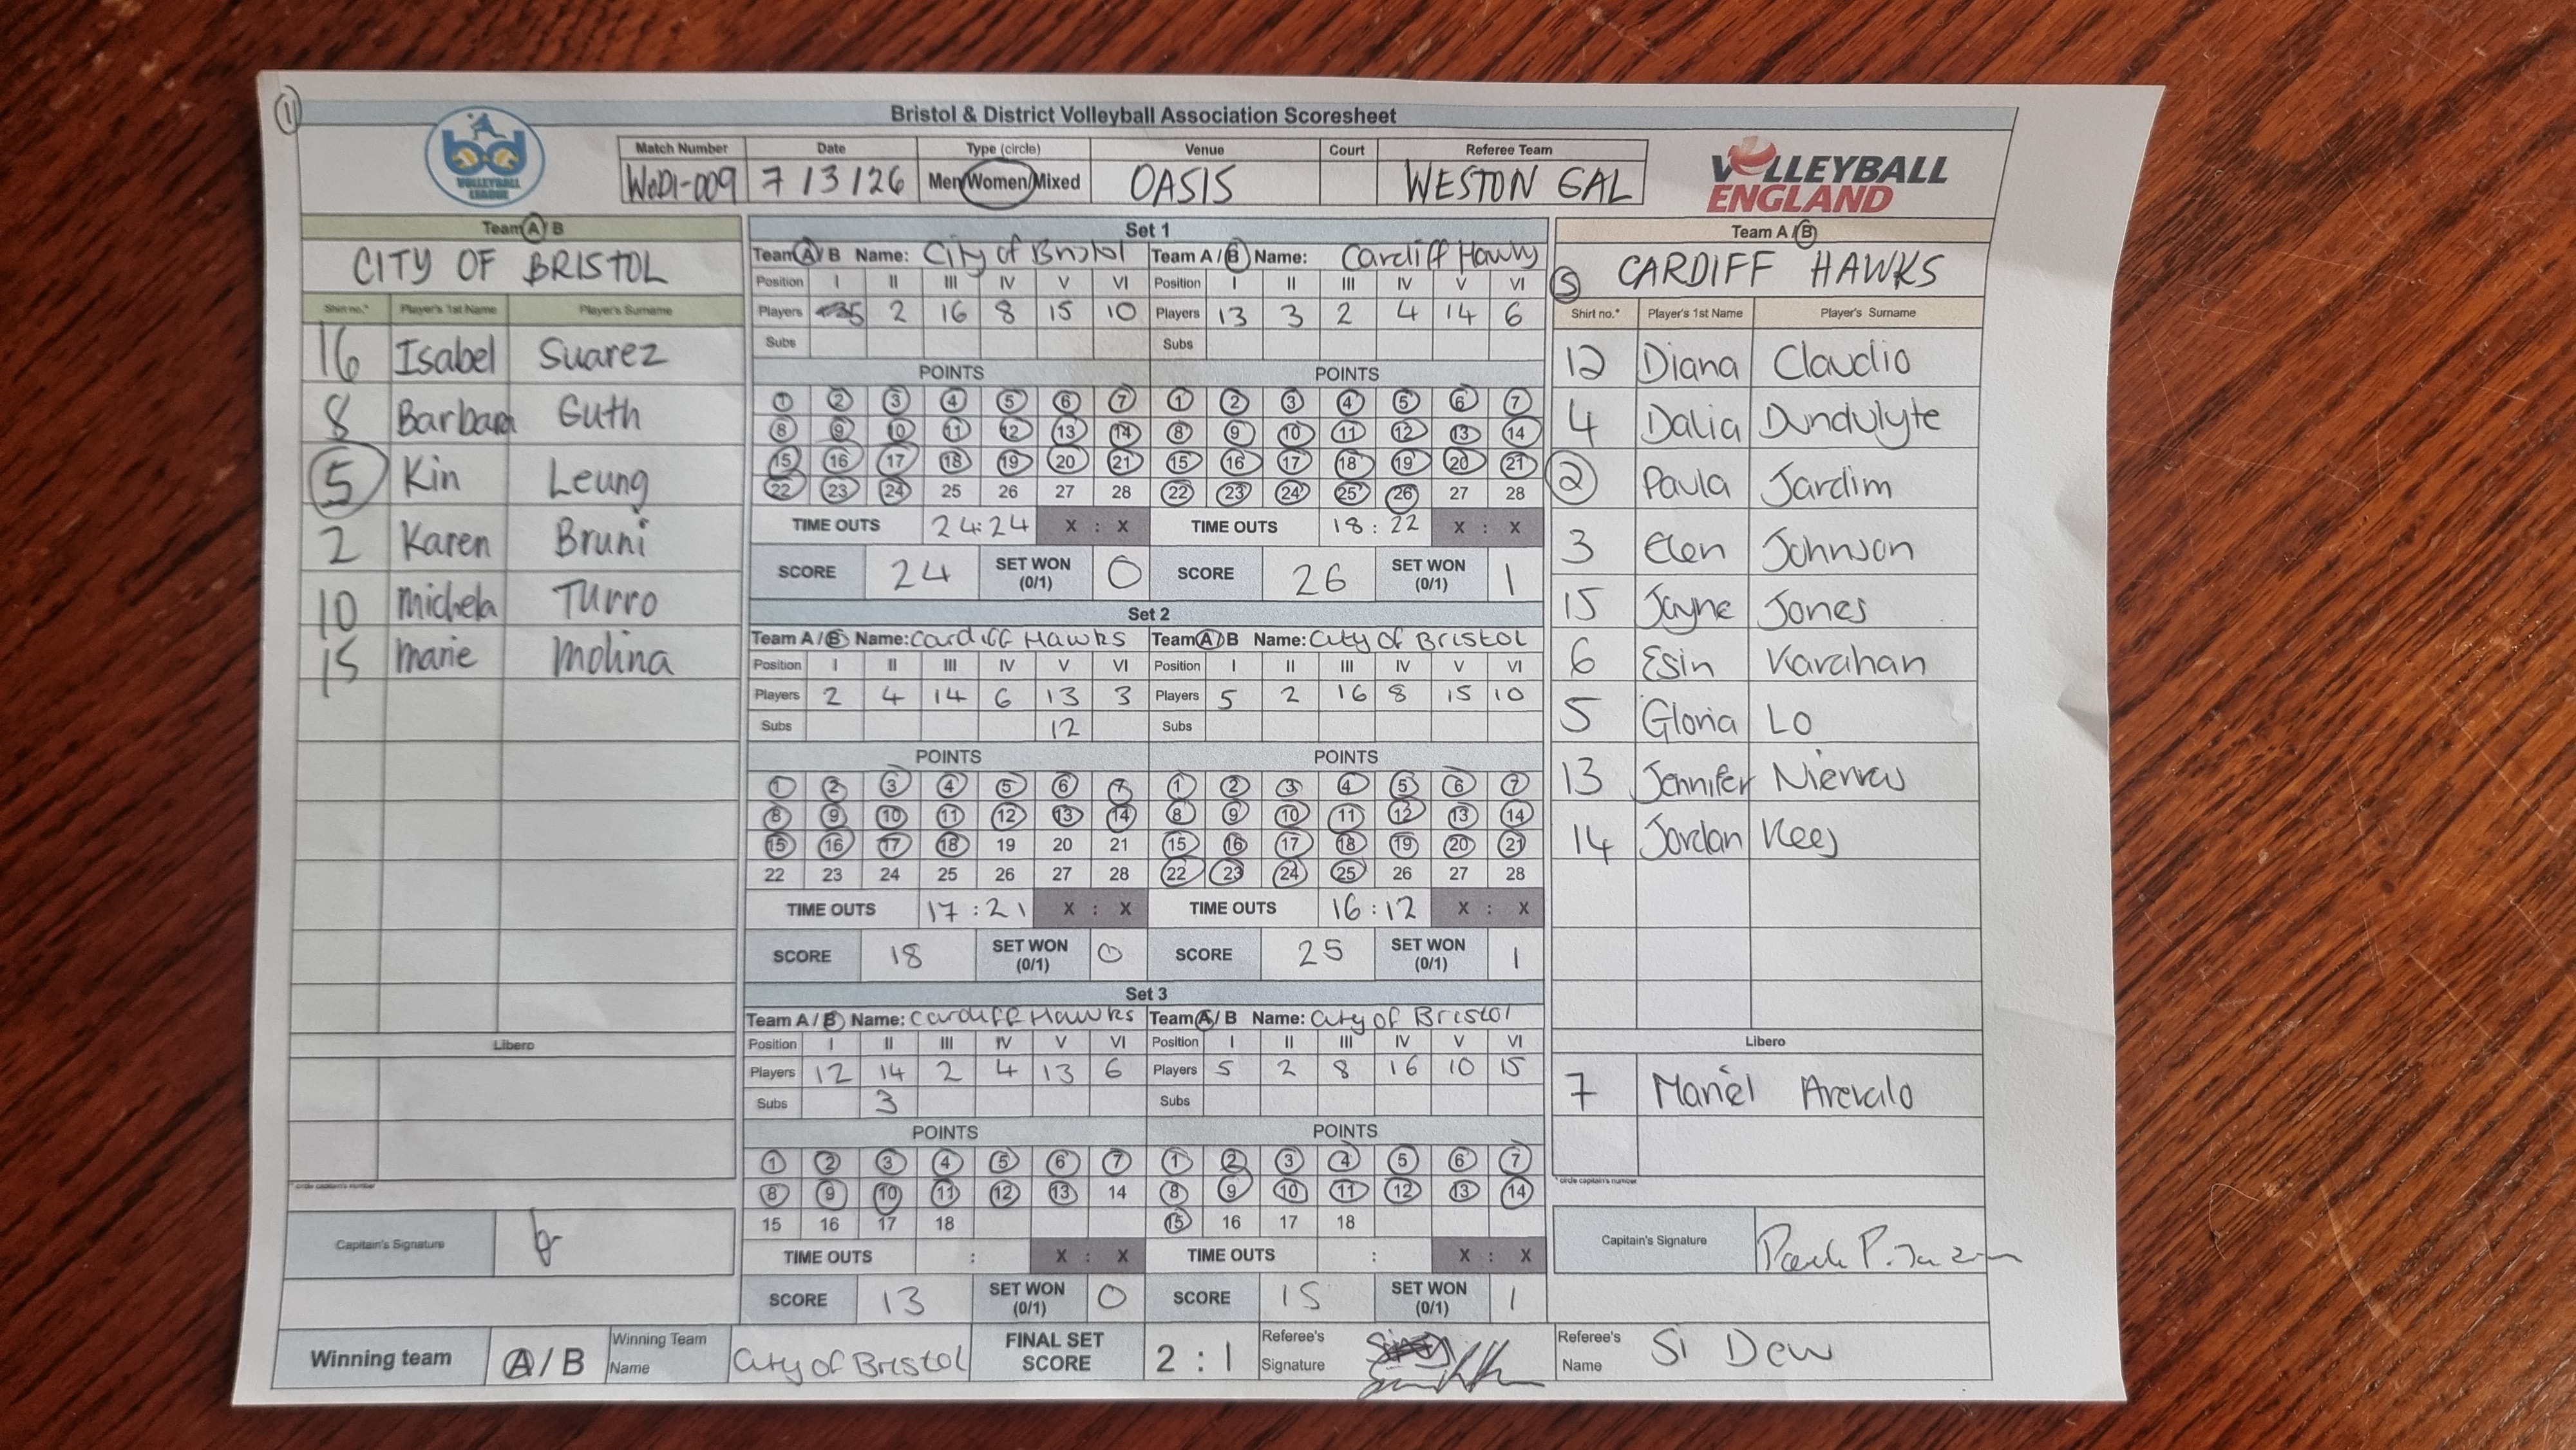 11
Bristol & District Volleyball Association Scoresheet
VOLLEYBALL LEAGUE
Match Number Date Type (circle) Venue Court Referee Team
WoD1-009 7/3/26 Men/Women/Mixed OASIS WESTON GAL
VOLLEYBALL ENGLAND
Team A/B
CITY OF BRISTOL
Shirt no.* Player's 1st Name Player's Surname
16 Isabel Suarez
8 Barbara Guth
5 Kin Leung
2 Karen Bruni
10 Michela Turro
15 Marie Molina
Libero
* circle captain's number
Capitain's Signature
Set 1
Team A/B Name: City of Bristol Team A/B Name: Cardiff Hawks
Position I II III IV V VI Position I II III IV V VI
Players 5 2 16 8 15 10 Players 13 3 2 4 14 6
Subs Subs
POINTS POINTS
1 2 3 4 5 6 7 1 2 3 4 5 6 7
8 9 10 11 12 13 14 8 9 10 11 12 13 14
15 16 17 18 19 20 21 15 16 17 18 19 20 21
22 23 24 25 26 27 28 22 23 24 25 26 27 28
TIME OUTS 24:24 X : X TIME OUTS 18:22 X : X
SCORE 24 SET WON (0/1) 0 SCORE 26 SET WON (0/1) 1
Set 2
Team A/B Name: Cardiff Hawks Team A/B Name: City of Bristol
Position I II III IV V VI Position I II III IV V VI
Players 2 4 14 6 13 3 Players 5 2 16 8 15 10
Subs 12 Subs
POINTS POINTS
1 2 3 4 5 6 7 1 2 3 4 5 6 7
8 9 10 11 12 13 14 8 9 10 11 12 13 14
15 16 17 18 19 20 21 15 16 17 18 19 20 21
22 23 24 25 26 27 28 22 23 24 25 26 27 28
TIME OUTS 17:21 X : X TIME OUTS 16:12 X : X
SCORE 18 SET WON (0/1) 0 SCORE 25 SET WON (0/1) 1
Set 3
Team A/B Name: Cardiff Hawks Team A/B Name: City of Bristol
Position I II III IV V VI Position I II III IV V VI
Players 12 14 2 4 13 6 Players 5 2 8 16 10 15
Subs 3 Subs
POINTS POINTS
1 2 3 4 5 6 7 1 2 3 4 5 6 7
8 9 10 11 12 13 14 8 9 10 11 12 13 14
15 16 17 18 15 16 17 18
TIME OUTS : X : X TIME OUTS : X : X
SCORE 13 SET WON (0/1) 0 SCORE 15 SET WON (0/1) 1
Team A/B
S CARDIFF HAWKS
Shirt no.* Player's 1st Name Player's Surname
12 Diana Claudio
4 Dalia Dundulyte
2 Paula Jardim
3 Elen Johnson
15 Jayne Jones
6 Esin Karahan
5 Gloria Lo
13 Jennifer
14 Jordan Rees
Libero
7 Mariel Arevalo
* circle captain's number
Capitain's Signature
Winning team A/B Winning Team Name City of Bristol FINAL SET SCORE 2 : 1 Referee's Signature Referee's Name Si Dew